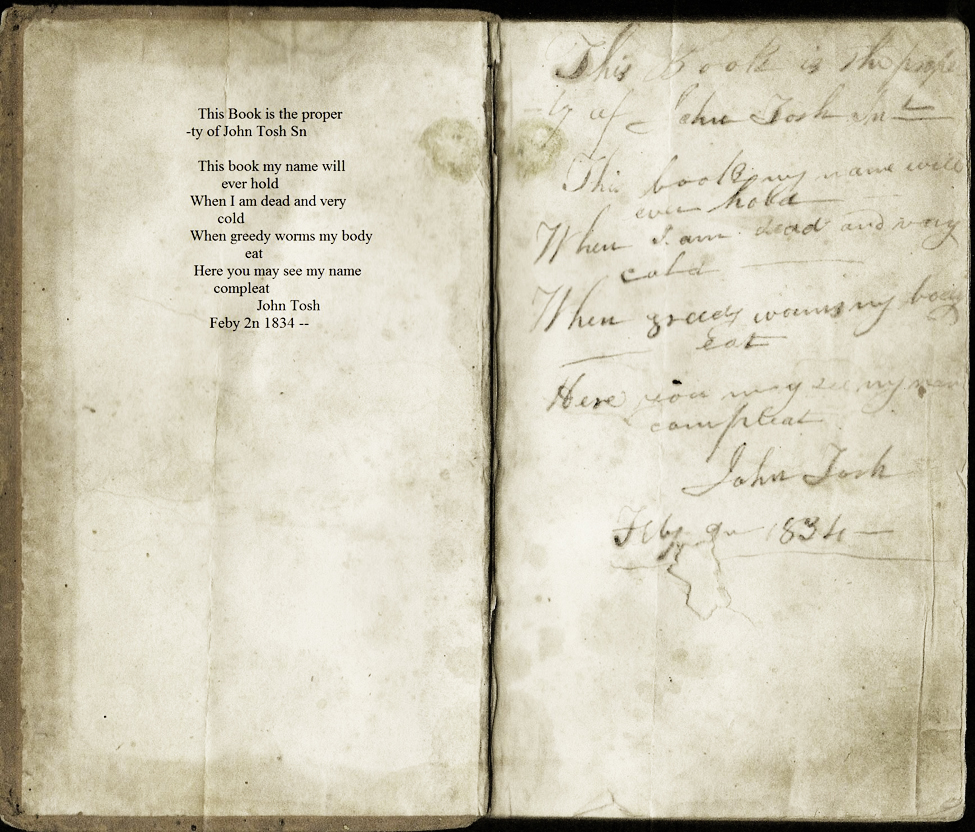 This Book is the proper
-ty of John Tosh Sn
This book my name will
ever hold
When I am dead and very
cold
When greedy worms my body
eat
Here you may see my name
compleat
John Tosh
Feby 2n 1834 --
This Book is the proper
-ty of John Tosh Sn
This book my name will
ever hold
When I am dead and very
cold
When greedy worms my body
eat
Here you may see my name
compleat
John Tosh
Feby 2n 1834 —